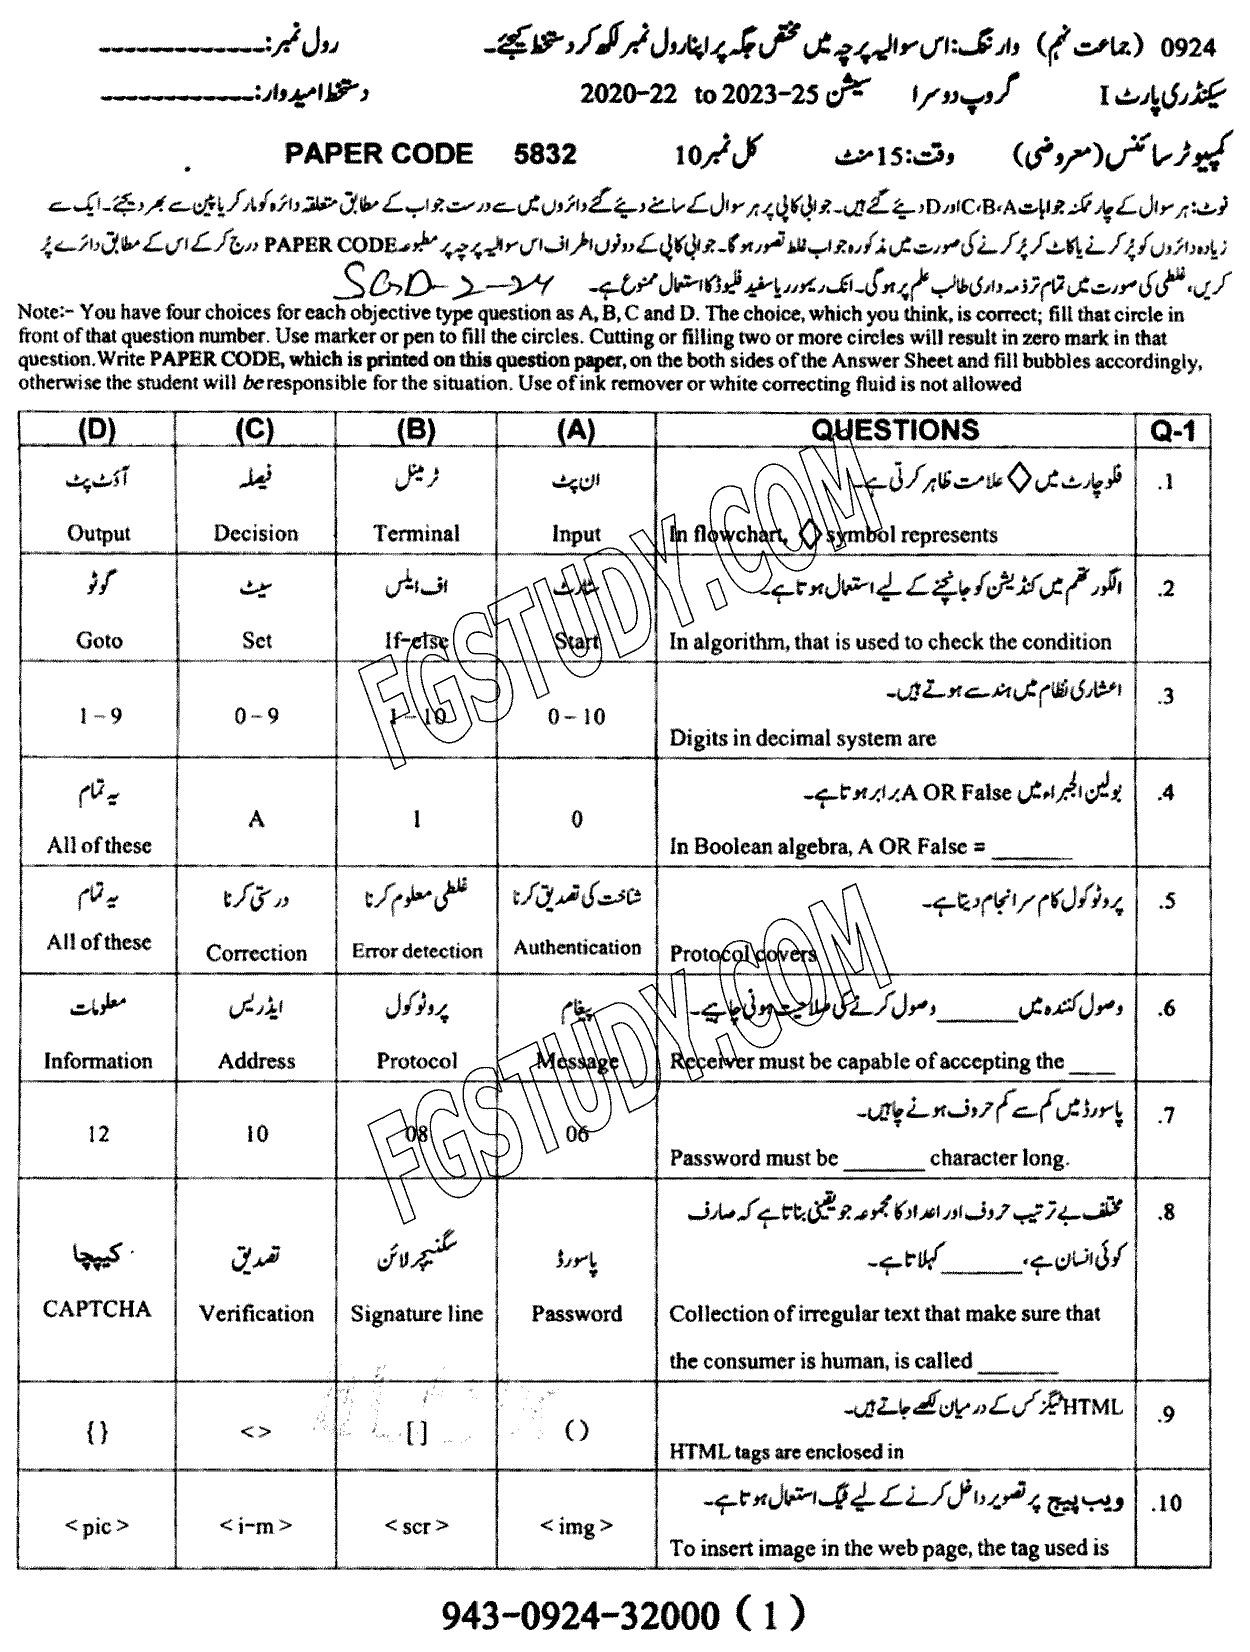 0924 (جماعت نہم) وارننگ: اس سوالیہ پرچہ میں مختص جگہ پر اپنا رول نمبر لکھ کر دستخط کیجئے۔ رول نمبر: _____________
سیکنڈری پارٹ I گروپ دوسرا سیشن 2020-22 to 2023-25 دستخط امیدوار: _____________
کمپیوٹر سائنس (معروضی) وقت: 15 منٹ کل نمبر 10 PAPER CODE 5832
نوٹ: ہر سوال کے چار ممکنہ جوابات A، B، C اور D دیئے گئے ہیں۔ جوابی کاپی پر ہر سوال کے سامنے دیئے گئے دائروں میں سے درست جواب کے مطابق متعلقہ دائرہ کو مارکر یا پین سے بھر دیجئے۔ ایک سے
زیادہ دائروں کو پُر کرنے یا کاٹ کر پُر کرنے کی صورت میں مذکورہ جواب غلط تصور ہوگا۔ جوابی کاپی کے دونوں اطراف اس سوالیہ پرچہ پر مطبوعہ PAPER CODE درج کر کے اس کے مطابق دائرے پُر
کریں، غلطی کی صورت میں تمام تر ذمہ داری طالب علم پر ہوگی۔ انک ریمور یا سفید فلیوڈ کا استعمال ممنوع ہے۔ SGD-2-24
Note:- You have four choices for each objective type question as A, B, C and D. The choice, which you think, is correct; fill that circle in
front of that question number. Use marker or pen to fill the circles. Cutting or filling two or more circles will result in zero mark in that
question. Write PAPER CODE, which is printed on this question paper, on the both sides of the Answer Sheet and fill bubbles accordingly,
otherwise the student will be responsible for the situation. Use of ink remover or white correcting fluid is not allowed
(D) (C) (B) (A) QUESTIONS Q-1
.1 فلو چارٹ میں ◇ علامت ظاہر کرتی ہے۔ ان پٹ ٹرمینل فیصلہ آؤٹ پٹ
Output Decision Terminal Input In flowchart, ◇ symbol represents
.2 الگورتھم میں کنڈیشن کو جانچنے کے لیے استعمال ہوتا ہے۔ سٹارٹ اف ایلس سیٹ گوٹو
Goto Set If-else Start In algorithm, that is used to check the condition
.3 اعشاری نظام میں ہندسے ہوتے ہیں۔
1 – 9 0 – 9 1 – 10 0 – 10 Digits in decimal system are
.4 بولین الجبراء میں A OR False برابر ہوتا ہے۔ یہ تمام
All of these A 1 0 In Boolean algebra, A OR False = _______
.5 پروٹوکول کام سرانجام دیتا ہے۔ شناخت کی تصدیق کرنا غلطی معلوم کرنا درستی کرنا یہ تمام
All of these Correction Error detection Authentication Protocol covers
.6 وصول کنندہ میں _______ وصول کرنے کی صلاحیت ہونی چاہیے۔ پیغام پروٹوکول ایڈریس معلومات
Information Address Protocol Message Receiver must be capable of accepting the ____
.7 پاسورڈ میں کم سے کم حروف ہونے چاہیں۔
12 10 08 06 Password must be _______ character long.
.8 مختلف بے ترتیب حروف اور اعداد کا مجموعہ جو یقینی بناتا ہے کہ صارف
کوئی انسان ہے، _______ کہلاتا ہے۔ پاسورڈ سگنیچر لائن تصدیق کیپچا
CAPTCHA Verification Signature line Password Collection of irregular text that make sure that
the consumer is human, is called _______
.9 HTML ٹیگز کس کے درمیان لکھے جاتے ہیں۔
{ } < > [ ] ( ) HTML tags are enclosed in
.10 ویب پیج پر تصویر داخل کرنے کے لیے ٹیگ استعمال ہوتا ہے۔
< pic > < i-m > < scr > < img > To insert image in the web page, the tag used is
FGSTUDY.COM
FGSTUDY.COM
943-0924-32000 ( 1 )